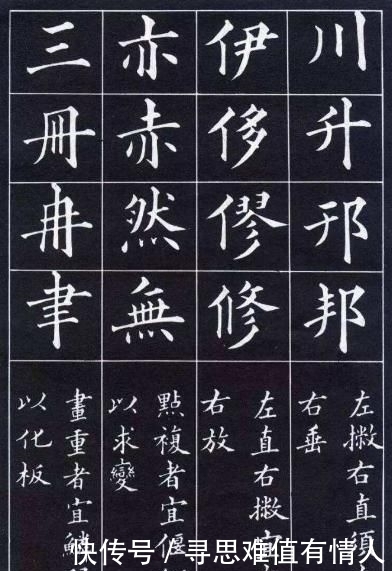 川
升
邦
左撇右直須
右垂
伊
侈
僇
修
左直右撇
右放
亦
赤
然
無
點複者宜偃
以求變
三
冊
冉
聿
畫重者宜鱗
以化板
快传号 / 寻思难值有情人